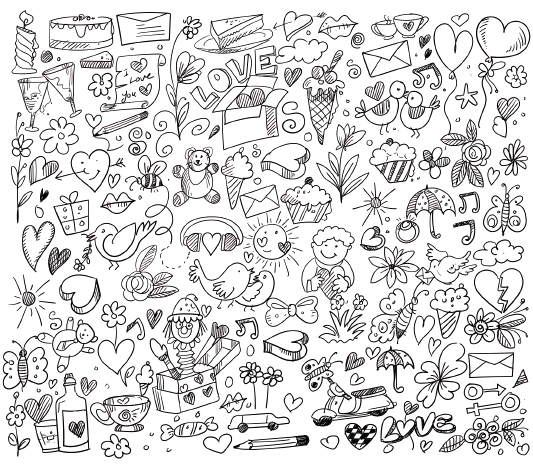 I Love
you
LOVE
IS
LOVE